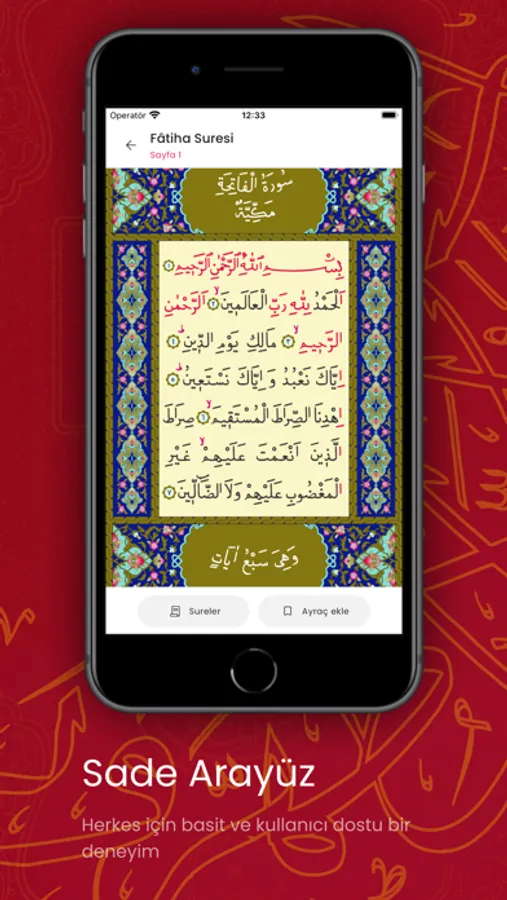 Operatör 12:33
Fâtiha Suresi
Sayfa 1
سُورَةُ الْفَاتِحَةِ
مَكِّيَّةٌ
بِسْــــمِ اللّٰهِ الرَّحْمٰنِ الرَّحٖيمِ ١
اَلْحَمْدُ لِلّٰهِ رَبِّ الْعَالَمٖينَ ٢ اَلرَّحْمٰنِ
الرَّحٖيمِ ٣ مَالِكِ يَوْمِ الدّٖينِ ٤
اِيَّاكَ نَعْبُدُ وَ اِيَّاكَ نَسْتَعٖينُ ٥
اِهْدِنَا الصِّرَاطَ الْمُسْتَقٖيمَ ٦ صِرَاطَ
الَّذٖينَ اَنْعَمْتَ عَلَيْهِمْ غَيْرِ
الْمَغْضُوبِ عَلَيْهِمْ وَلَا الضَّٓالّٖينَ ٧
وَهِيَ سَبْعُ اٰيَاتٍ
Sureler Ayraç ekle
Sade Arayüz
Herkes için basit ve kullanıcı dostu bir
deneyim